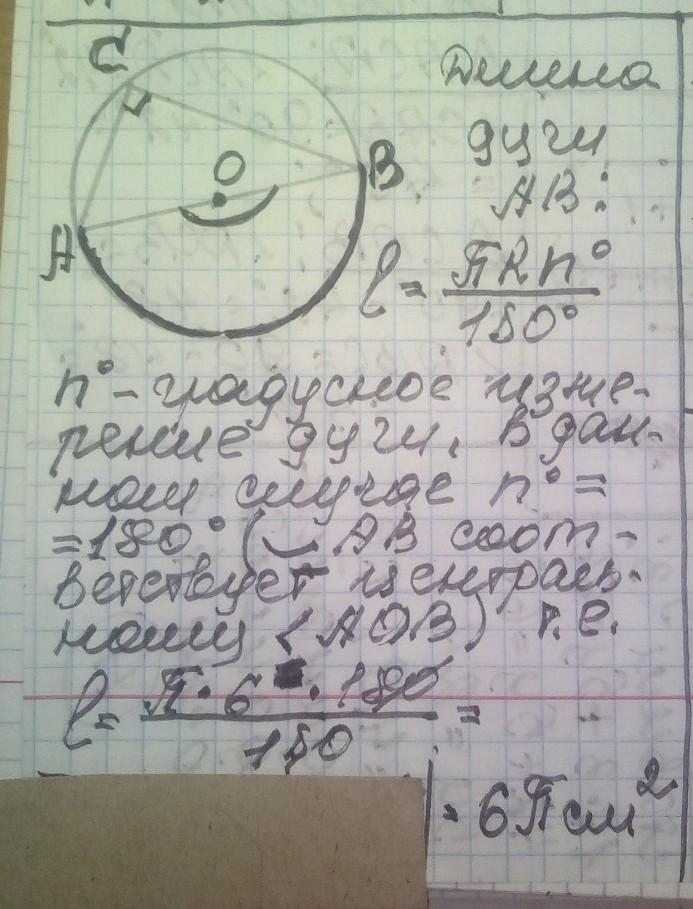 C
O
B
A
Длина
дуги
AB:
l = ПRn° / 180°
n° - градусное изме-
рение дуги. В дан-
ном случае n° =
= 180° (◡AB соот-
ветствует централь-
ному <AOB) т.е.
l = П · 6 · 180 / 180 =
= 6П см²